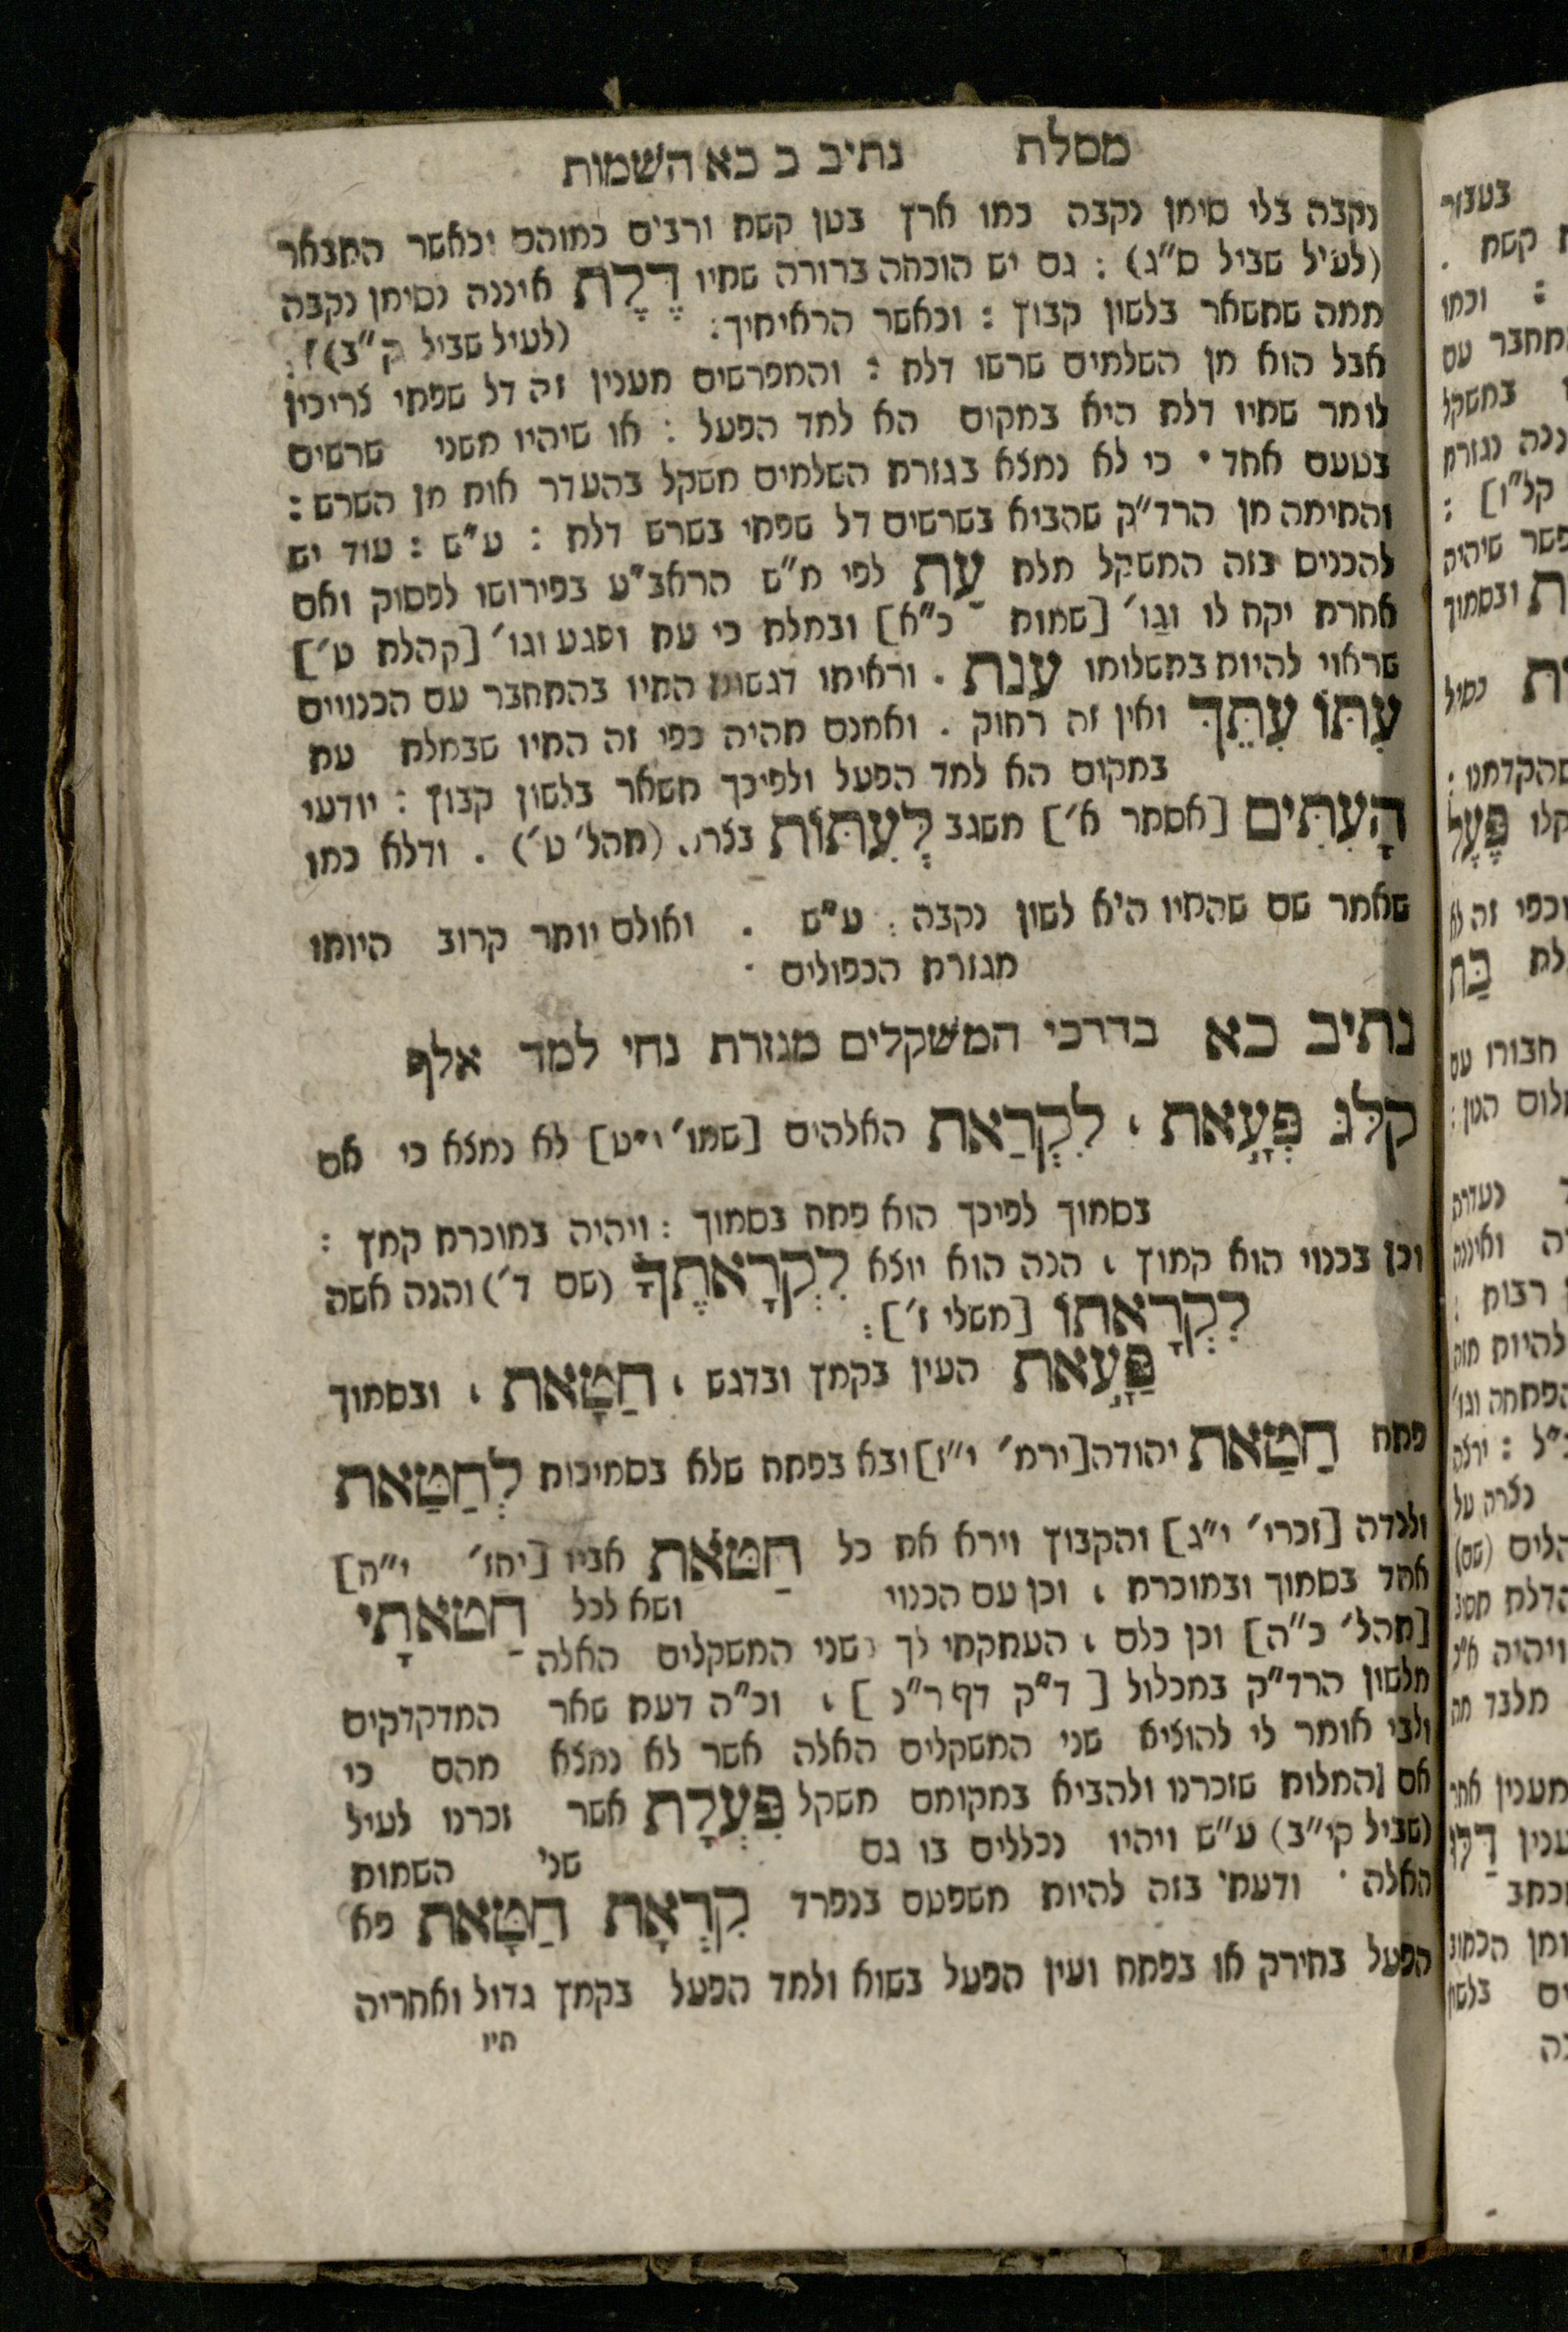 מסלת נתיב כ כא השמות
נקבה בלי סימן נקבה כמו ארץ בטן קשת ורבים כמוהם וכאשר התבאר
(לעיל שביל ס"ג) : גם יש הוכחה ברורה שתיו דֶּלֶת איננה לסימן נקבה
ממה שתשאר בלשון קבוץ : וכאשר הראיתיך : (לעיל שביל ק"ב) :
אבל הוא מן השלמים שרשו דלת : והמפרשים מענין זה דל שפתי צריכין
לומר שתיו דלת היא במקום הא למד הפעל : או שיהיו משני שרשים
בטעם אחד · כי לא נמצא בגזרת השלמים משקל בהעדר אות מן השרש :
והתימה מן הרד"ק שהביא בשרשים דל שפתי בשרש דלת : ע"ש : עוד יש
להכנים בזה המשקל מלת עֵת לפי מ"ש הראב"ע בפירושו לפסוק ואם
אחרת יקח לו וגו' [שמות כ"א] ובמלת כי עת ופגע וגו' [קהלת ט']
שראוי להיות בתשלומו ענת . וראיתו דגשות התיו בהתחבר עם הכנויים
עִתּוֹ עִתֵּךְ ואין זה רחוק . ואמנם תהיה כפי זה התיו שבמלת עת
במקום הא למד הפעל ולפיכך תשאר בלשון קבוץ : יודעי
הָעִתִּים [אסתר א'] משגב לְעִתּוֹת בצרה (תהל' ט') . ודלא כמו
שאמר שם שהתיו היא לשון נקבה : ע"ש . ואולם יותר קרוב היותו
מגזרת הכפולים ·
נתיב כא בדרכי המשקלים מגזרת נחי למד אלף
קלג פְּעָאת , לִקְרַאת האלהים [שמו' י"ט] לא נמצא כי אם
בסמוך לפיכך הוא פתח בסמוך : ויהיה במוכרת קמץ :
וכן בכנוי הוא קמוץ , הנה הוא יוצא לִקְרָאתֶךָ (שם ד') והנה אשה
לִקְרָאתוֹ [משלי ז'] :
פַּעָּאת העין בקמץ ובדגש , חַטָּאת , ובסמוך
פתח חַטַּאת יהודה [ירמ' י"ז] ובא בפתח שלא בסמיכות לְחַטַּאת
ולנדה [זכרי' י"ג] והקבוץ וירא את כל חַטֹּאת אביו [יחז' י"ח]
אחד בסמוך ובמוכרת , וכן עם הכנוי ושא לכל חַטֹּאתָי
[תהל' כ"ה] וכן כלם , העתקתי לך שני המשקלים האלה
מלשון הרד"ק במכלול [ד"ק דף ר"כ] , וכ"ה דעת שאר המדקדקים
ולבי אומר לי להוציא שני המשקלים האלה אשר לא נמצא מהם כי
אם המלות שזכרנו ולהביא במקומם משקל פִּעְלָת אשר זכרנו לעיל
(שביל קי"ב) ע"ש ויהיו נכללים בו גם שני השמות
האלה · ודעתי בזה להיות משפטם בנפרד קִרְאָת חַטָּאת פא
הפעל בחירק או בפתח ועין הפעל בשוא ולמד הפעל בקמץ גדול ואחריה
תיו